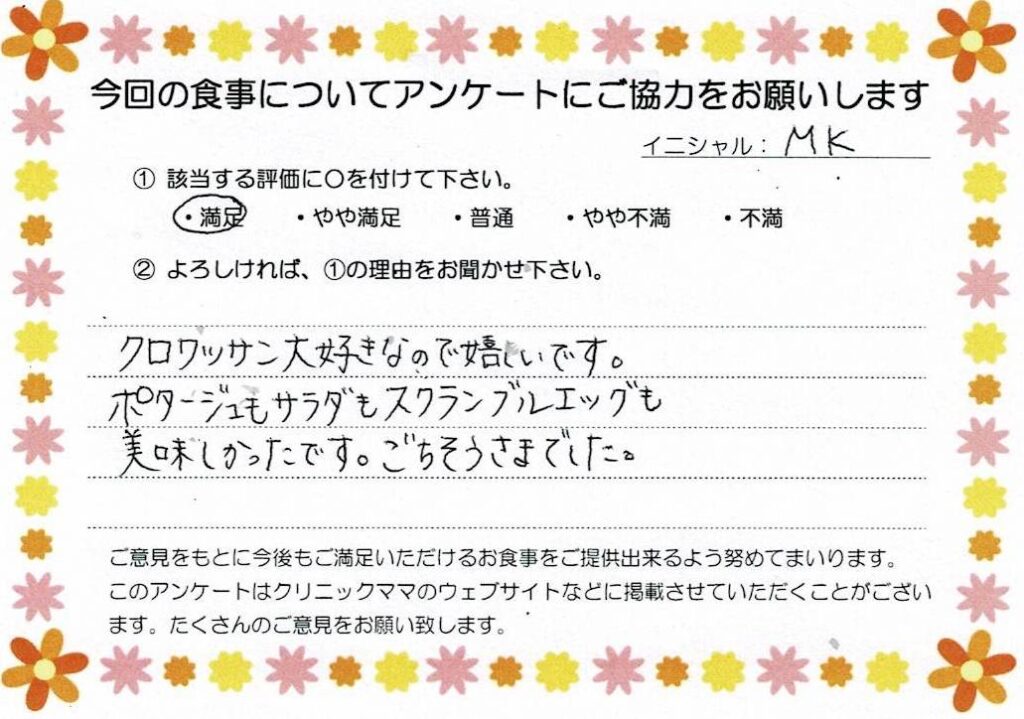 今回の食事についてアンケートにご協力をお願いします
イニシャル： MK
① 該当する評価に〇を付けて下さい。
・満足 ・やや満足 ・普通 ・やや不満 ・不満
② よろしければ、①の理由をお聞かせ下さい。
クロワッサン大好きなので嬉しいです。
ポタージュもサラダもスクランブルエッグも
美味しかったです。ごちそうさまでした。
ご意見をもとに今後もご満足いただけるお食事をご提供出来るよう努めてまいります。
このアンケートはクリニックママのウェブサイトなどに掲載させていただくことがござい
ます。たくさんのご意見をお願い致します。